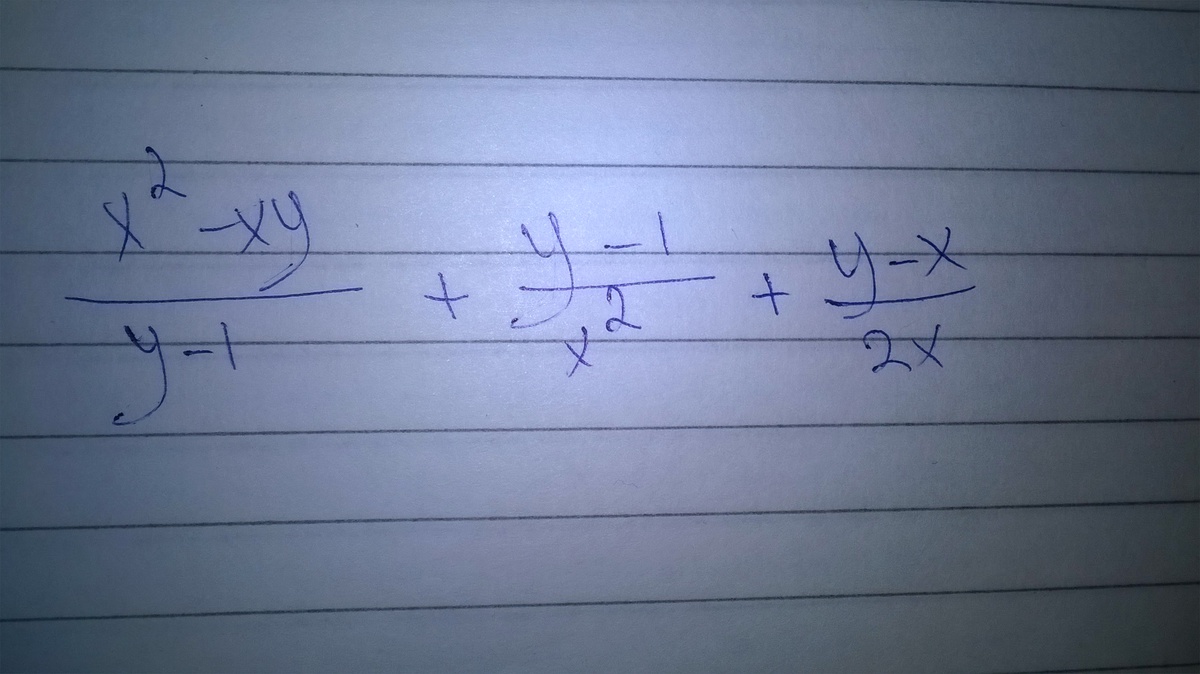 \frac{x^2 - xy}{y - 1} + \frac{y - 1}{x^2} + \frac{y - x}{2x}